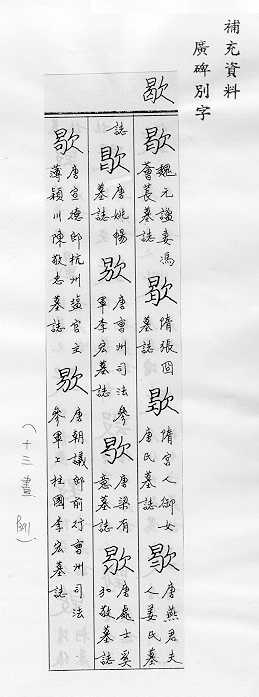 補充資料
廣碑別字
歇
歇 魏元謐妻馮薈萇墓誌 歇 隋張囧墓誌 歇 隋宮人御女唐氏墓誌 歇 唐燕君夫人姜氏墓
誌 歇 唐姚暢墓誌 歇 唐曹州司法參軍李宏墓誌 歇 唐梁有意墓誌 歇 唐處士奚和敬墓誌
歇 唐宣德郎杭州鹽官主薄潁川陳敬忠墓誌 歇 唐朝議郎前行曹州司法參軍上柱國李宏墓誌
（十三畫 ）